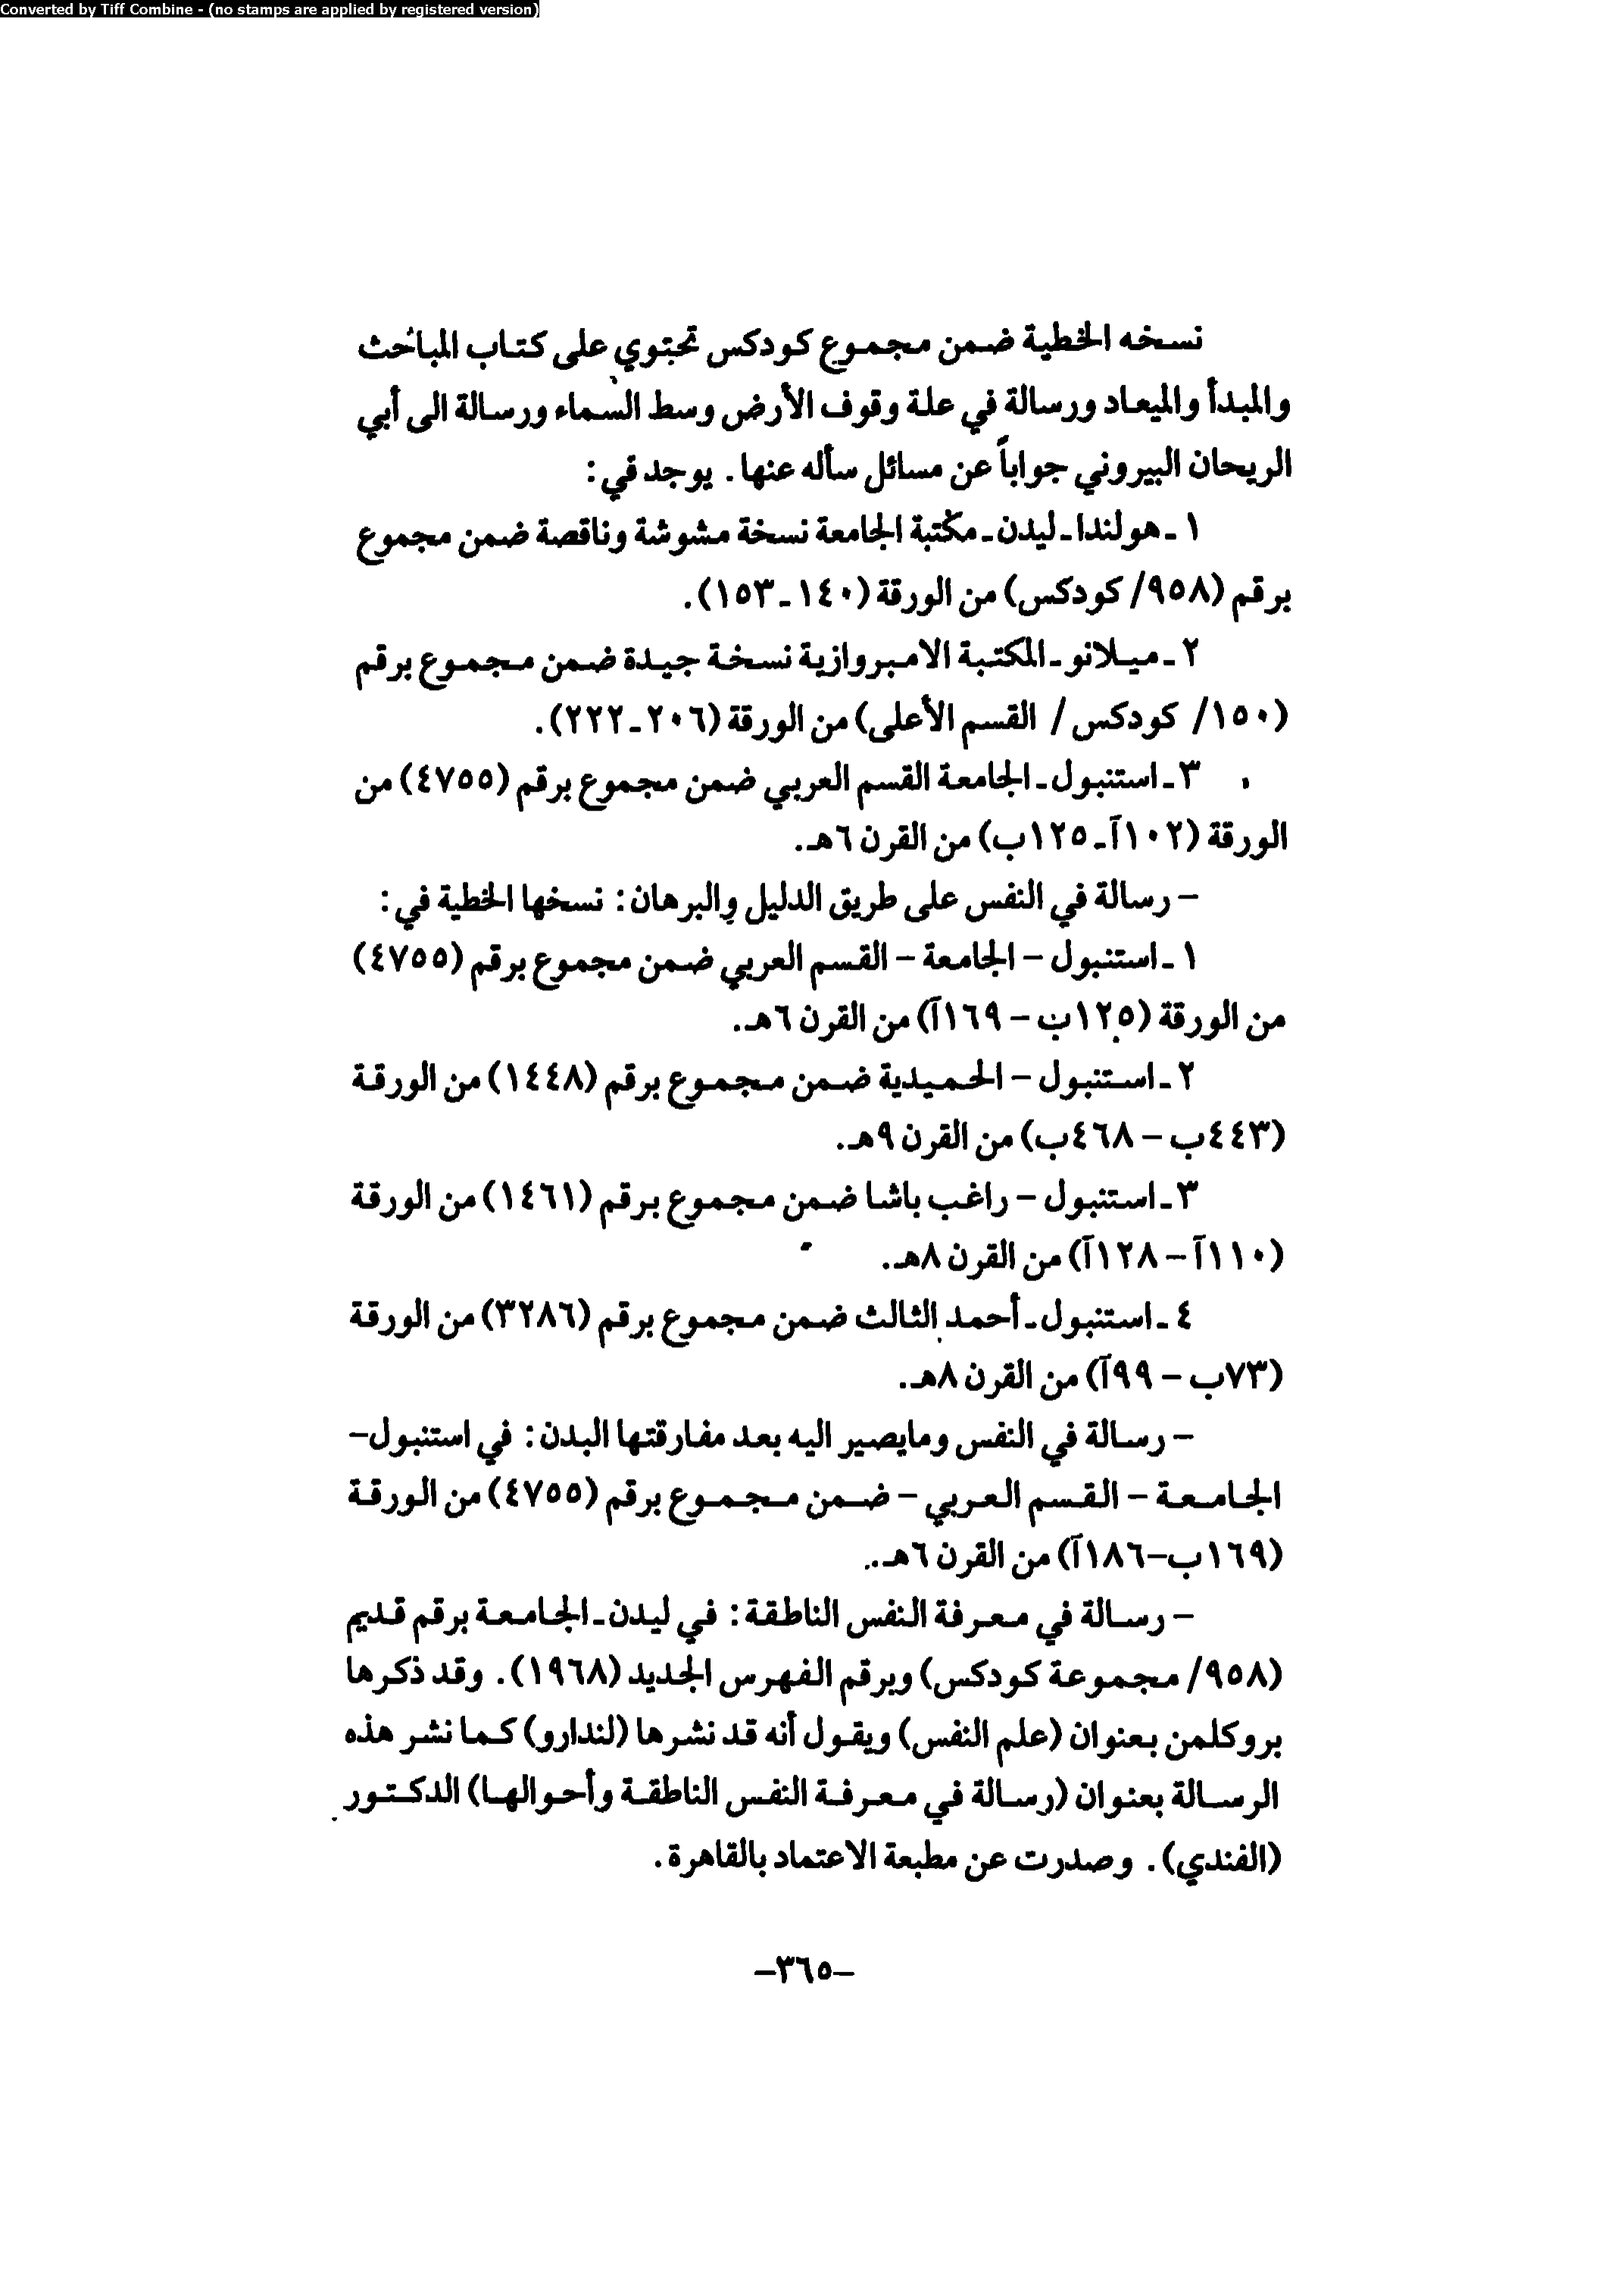 Converted by Tiff Combine - (no stamps are applied by registered version)
نسخه الخطية ضمن مجموع كودكس تحتوي على كتاب المباحث
والمبدأ والميعاد ورسالة في علة وقوف الأرض وسط السماء ورسالة الى أبي
الريحان البيروني جواباً عن مسائل سأله عنها. يوجد في:
١ـ هولندا ـ ليدن ـ مكتبة الجامعة نسخة مشوشة وناقصة ضمن مجموع
برقم (٩٥٨/ كودكس) من الورقة (١٤٠ـ١٥٣).
٢ـ ميلانو ـ المكتبة الامبروازية نسخة جيدة ضمن مجموع برقم
(١٥٠/ كودكس/ القسم الأعلى) من الورقة (٢٠٦ـ٢٢٢).
٣ـ استنبول ـ الجامعة القسم العربي ضمن مجموع برقم (٤٧٥٥) من
الورقة (١٠٢آـ١٢٥ب) من القرن ٦هـ.
– رسالة في النفس على طريق الدليل والبرهان: نسخها الخطية في:
١ـ استنبول – الجامعة – القسم العربي ضمن مجموع برقم (٤٧٥٥)
من الورقة (١٢٥ب – ١٦٩آ) من القرن ٦هـ.
٢ـ استنبول – الحميدية ضمن مجموع برقم (١٤٤٨) من الورقة
(٤٤٣ب – ٤٦٨ب) من القرن ٩هـ.
٣ـ استنبول – راغب باشا ضمن مجموع برقم (١٤٦١) من الورقة
(١١٠آ – ١٢٨آ) من القرن ٨هـ.
٤ـ استنبول ـ أحمد الثالث ضمن مجموع برقم (٣٢٨٦) من الورقة
(٧٣ب – ٩٩آ) من القرن ٨هـ.
– رسالة في النفس ومايصير اليه بعد مفارقتها البدن: في استنبول–
الجامعة – القسم العربي – ضمن مجموع برقم (٤٧٥٥) من الورقة
(١٦٩ب–١٨٦آ) من القرن ٦هـ..
– رسالة في معرفة النفس الناطقة: في ليدن ـ الجامعة برقم قديم
(٩٥٨/ مجموعة كودكس) وبرقم الفهرس الجديد (١٩٦٨). وقد ذكرها
بروكلمن بعنوان (علم النفس) ويقول أنه قد نشرها (لندارو) كما نشر هذه
الرسالة بعنوان (رسالة في معرفة النفس الناطقة وأحوالها) الدكتور
(الفندي). وصدرت عن مطبعة الاعتماد بالقاهرة.
–٣٦٥–